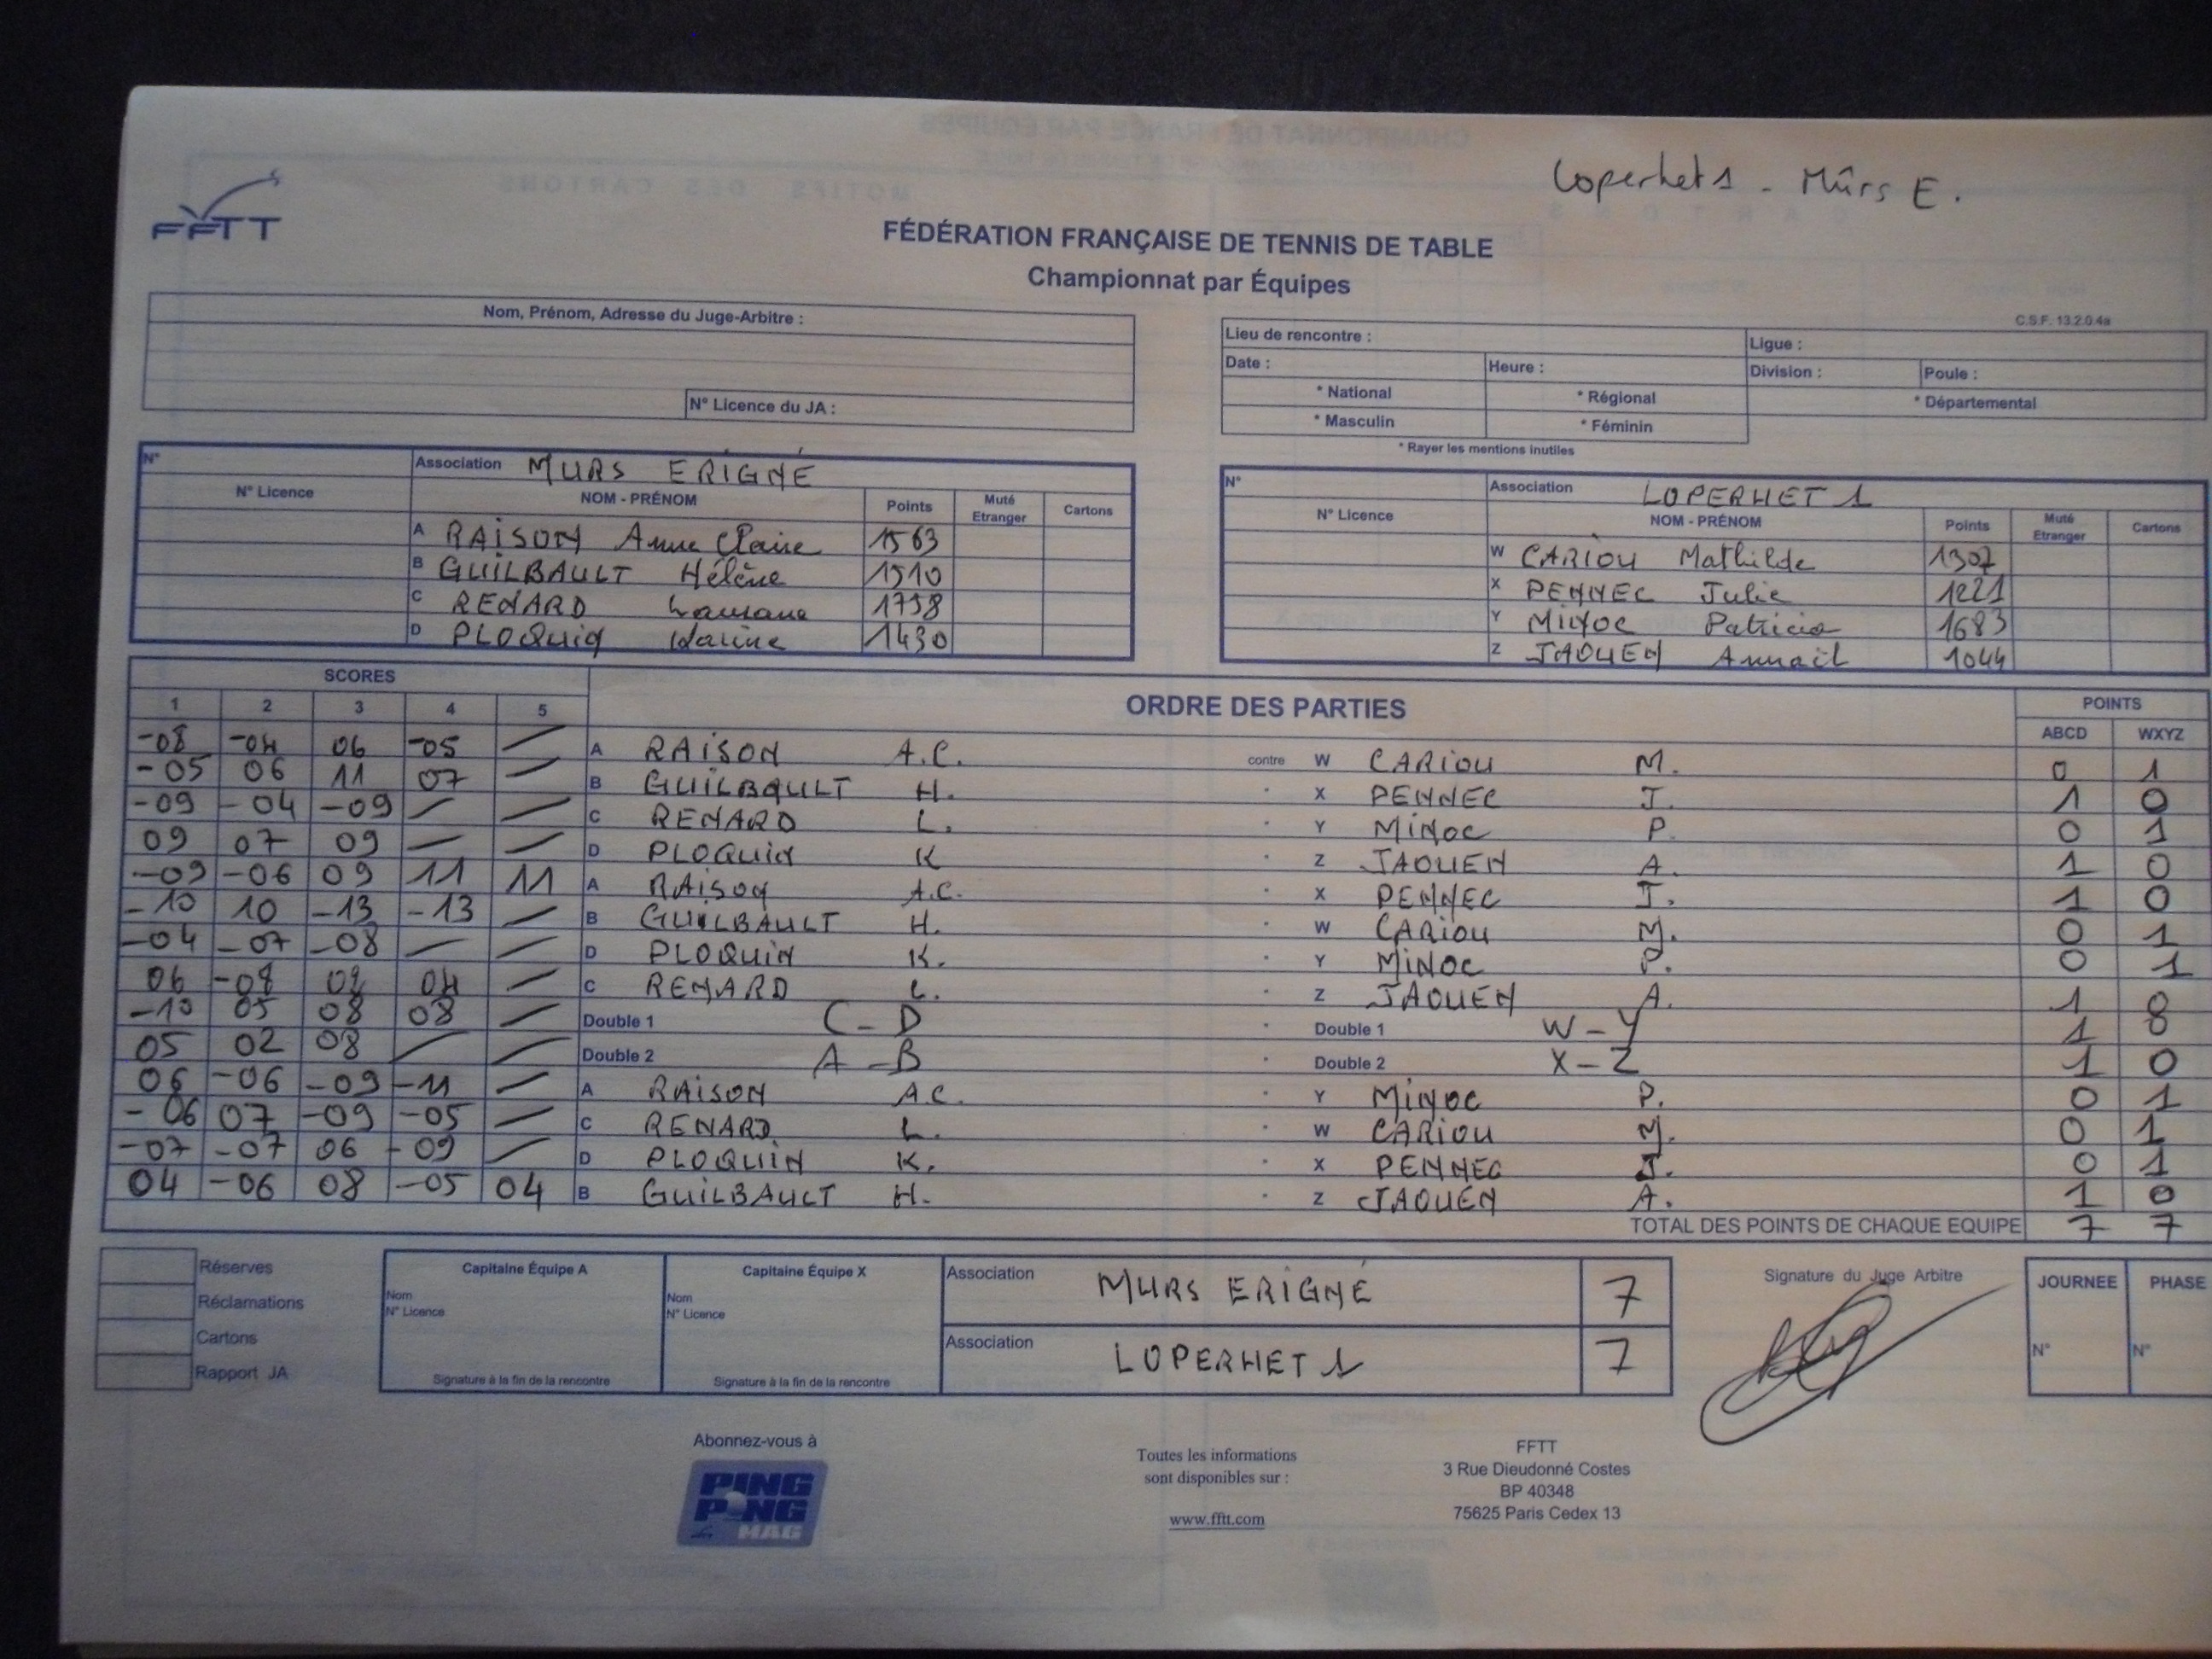 Loperhet 1 - Mûrs E.
FFTT
FÉDÉRATION FRANÇAISE DE TENNIS DE TABLE
Championnat par Équipes
C.S.F. 13.2.0.4a
Nom, Prénom, Adresse du Juge-Arbitre :
N° Licence du JA :
Lieu de rencontre : Ligue :
Date : Heure : Division : Poule :
* National * Régional * Départemental
* Masculin * Féminin
* Rayer les mentions inutiles
N° Association MURS ERIGNÉ
N° Licence NOM - PRÉNOM Points Muté Etranger Cartons
A RAISON Anne Claire 1563
B GUILBAULT Hélène 1510
C RENARD 1758
D PLOQUIN Karine 1430
N° Association LOPERHET 1
N° Licence NOM - PRÉNOM Points Muté Etranger Cartons
W CARIOU Mathilde 1307
X PENNEC Julie 1221
Y MINOC Patricia 1683
Z JAOUEN Annaït 1044
SCORES ORDRE DES PARTIES POINTS
1 2 3 4 5 ABCD WXYZ
-08 -04 06 -05 / A RAISON A.C. contre W CARIOU M. 0 1
-05 06 11 07 / B GUILBAULT H. " X PENNEC J. 1 0
-09 -04 -09 / / C RENARD L. " Y MINOC P. 0 1
09 07 09 / / D PLOQUIN K " Z JAOUEN A. 1 0
-09 -06 09 11 11 A RAISON A.C. " X PENNEC J. 1 0
-10 10 -13 -13 / B GUILBAULT H. " W CARIOU M. 0 1
-04 -07 -08 / / D PLOQUIN K. " Y MINOC P. 0 1
06 04 / C RENARD L. " Z JAOUEN A. 1 0
-10 05 08 08 / Double 1 C - D " Double 1 W - Y 1 0
05 02 08 / / Double 2 A - B " Double 2 X - Z 1 0
06 -06 -09 -11 / A RAISON A.C. " Y MINOC P. 0 1
-06 07 -09 -05 / C RENARD L. " W CARIOU M. 0 1
-07 -07 06 -09 / D PLOQUIN K. " X PENNEC J. 0 1
04 -06 08 -05 04 B GUILBAULT H. " Z JAOUEN A. 1 0
TOTAL DES POINTS DE CHAQUE EQUIPE 7 7
Réserves
Réclamations
Cartons
Rapport JA
Capitaine Équipe A
Nom
N° Licence
Signature à la fin de la rencontre
Capitaine Équipe X
Nom
N° Licence
Signature à la fin de la rencontre
Association MURS ERIGNÉ 7
Association LOPERHET 1 7
Signature du Juge Arbitre
JOURNEE PHASE
N° N°
Abonnez-vous à
PING PONG MAG
Toutes les informations
sont disponibles sur :
www.fftt.com
FFTT
3 Rue Dieudonné Costes
BP 40348
75625 Paris Cedex 13